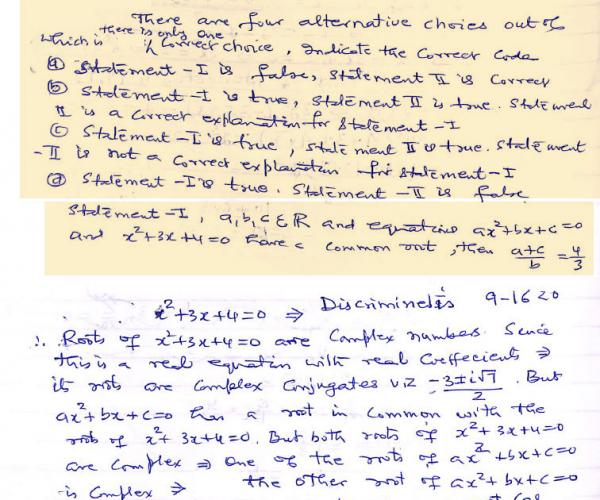 There are four alternative choies out of
which is there is only one correct choice, Indicate the Correct Code
ⓐ Statement-I is false, Statement II is Correct
ⓑ Statement-I is true, Statement II is true. Statement
II is a correct explanation for Statement-I
ⓒ Statement-I is true, Statement II is true. Statement
-II is not a Correct explanation for Statement-I
ⓓ Statement-I is true. Statement-II is false
Statement-I, a,b,c∈ℝ and equations ax²+bx+c=0
and x²+3x+4=0 have a common root, then (a+c)/b = 4/3
x²+3x+4=0 ⇒ Discriminant is 9-16<0
∴ Roots of x²+3x+4=0 are Complex numbers. Since
this is a real equation with real Coefficients ⇒
its roots are Complex Conjugates viz (-3±i√7)/2. But
ax²+bx+c=0 has a root in common with the
roots of x²+3x+4=0. But both roots of x²+3x+4=0
are Complex ⇒ One of the roots of ax²+bx+c=0
is Complex ⇒ the other root of ax²+bx+c=0